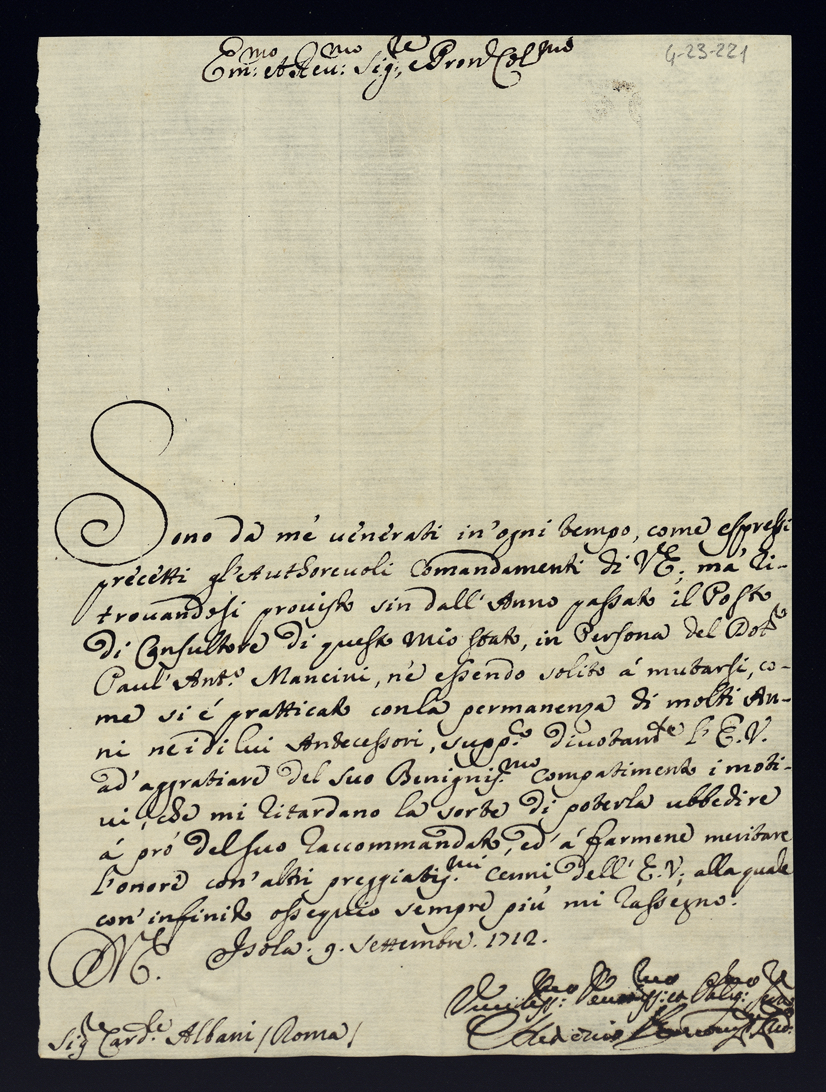 Em.mo et Reu.mo Sig.re e Pron Col.mo
4-23-221
Sono da mé uénérati in'ogni tempo, come espressi
précétti gl'Authoreuoli Comandamenti di V.E; má ri-
trouandosi prouisto sin dall'Anno passato il Posto
di Consultore di questo mio stato, in Persona del Dot.r
Paul'Ant.o Mancini, né essendo solito á mutarsi, co-
me si é pratticato con la permanenza di molti An-
ni nei di lui Antecessori, supp.co diuotam.te l'E.V.
ad'aggratiare del suo Benigniss.mo Compatimento i moti-
ui, che mi ritardano la sorte di poterla ubbedire
á pró del suo raccommandato, ed'á farmene meritare
l'onoré con'altri preggiatiss.mi cenni dell'E.V; alla quale
con'infinito ossequio sempre piú mi rassegno.
Isola. 9. Settembre. 1712.
Sig.re Card.le Albani / Roma /